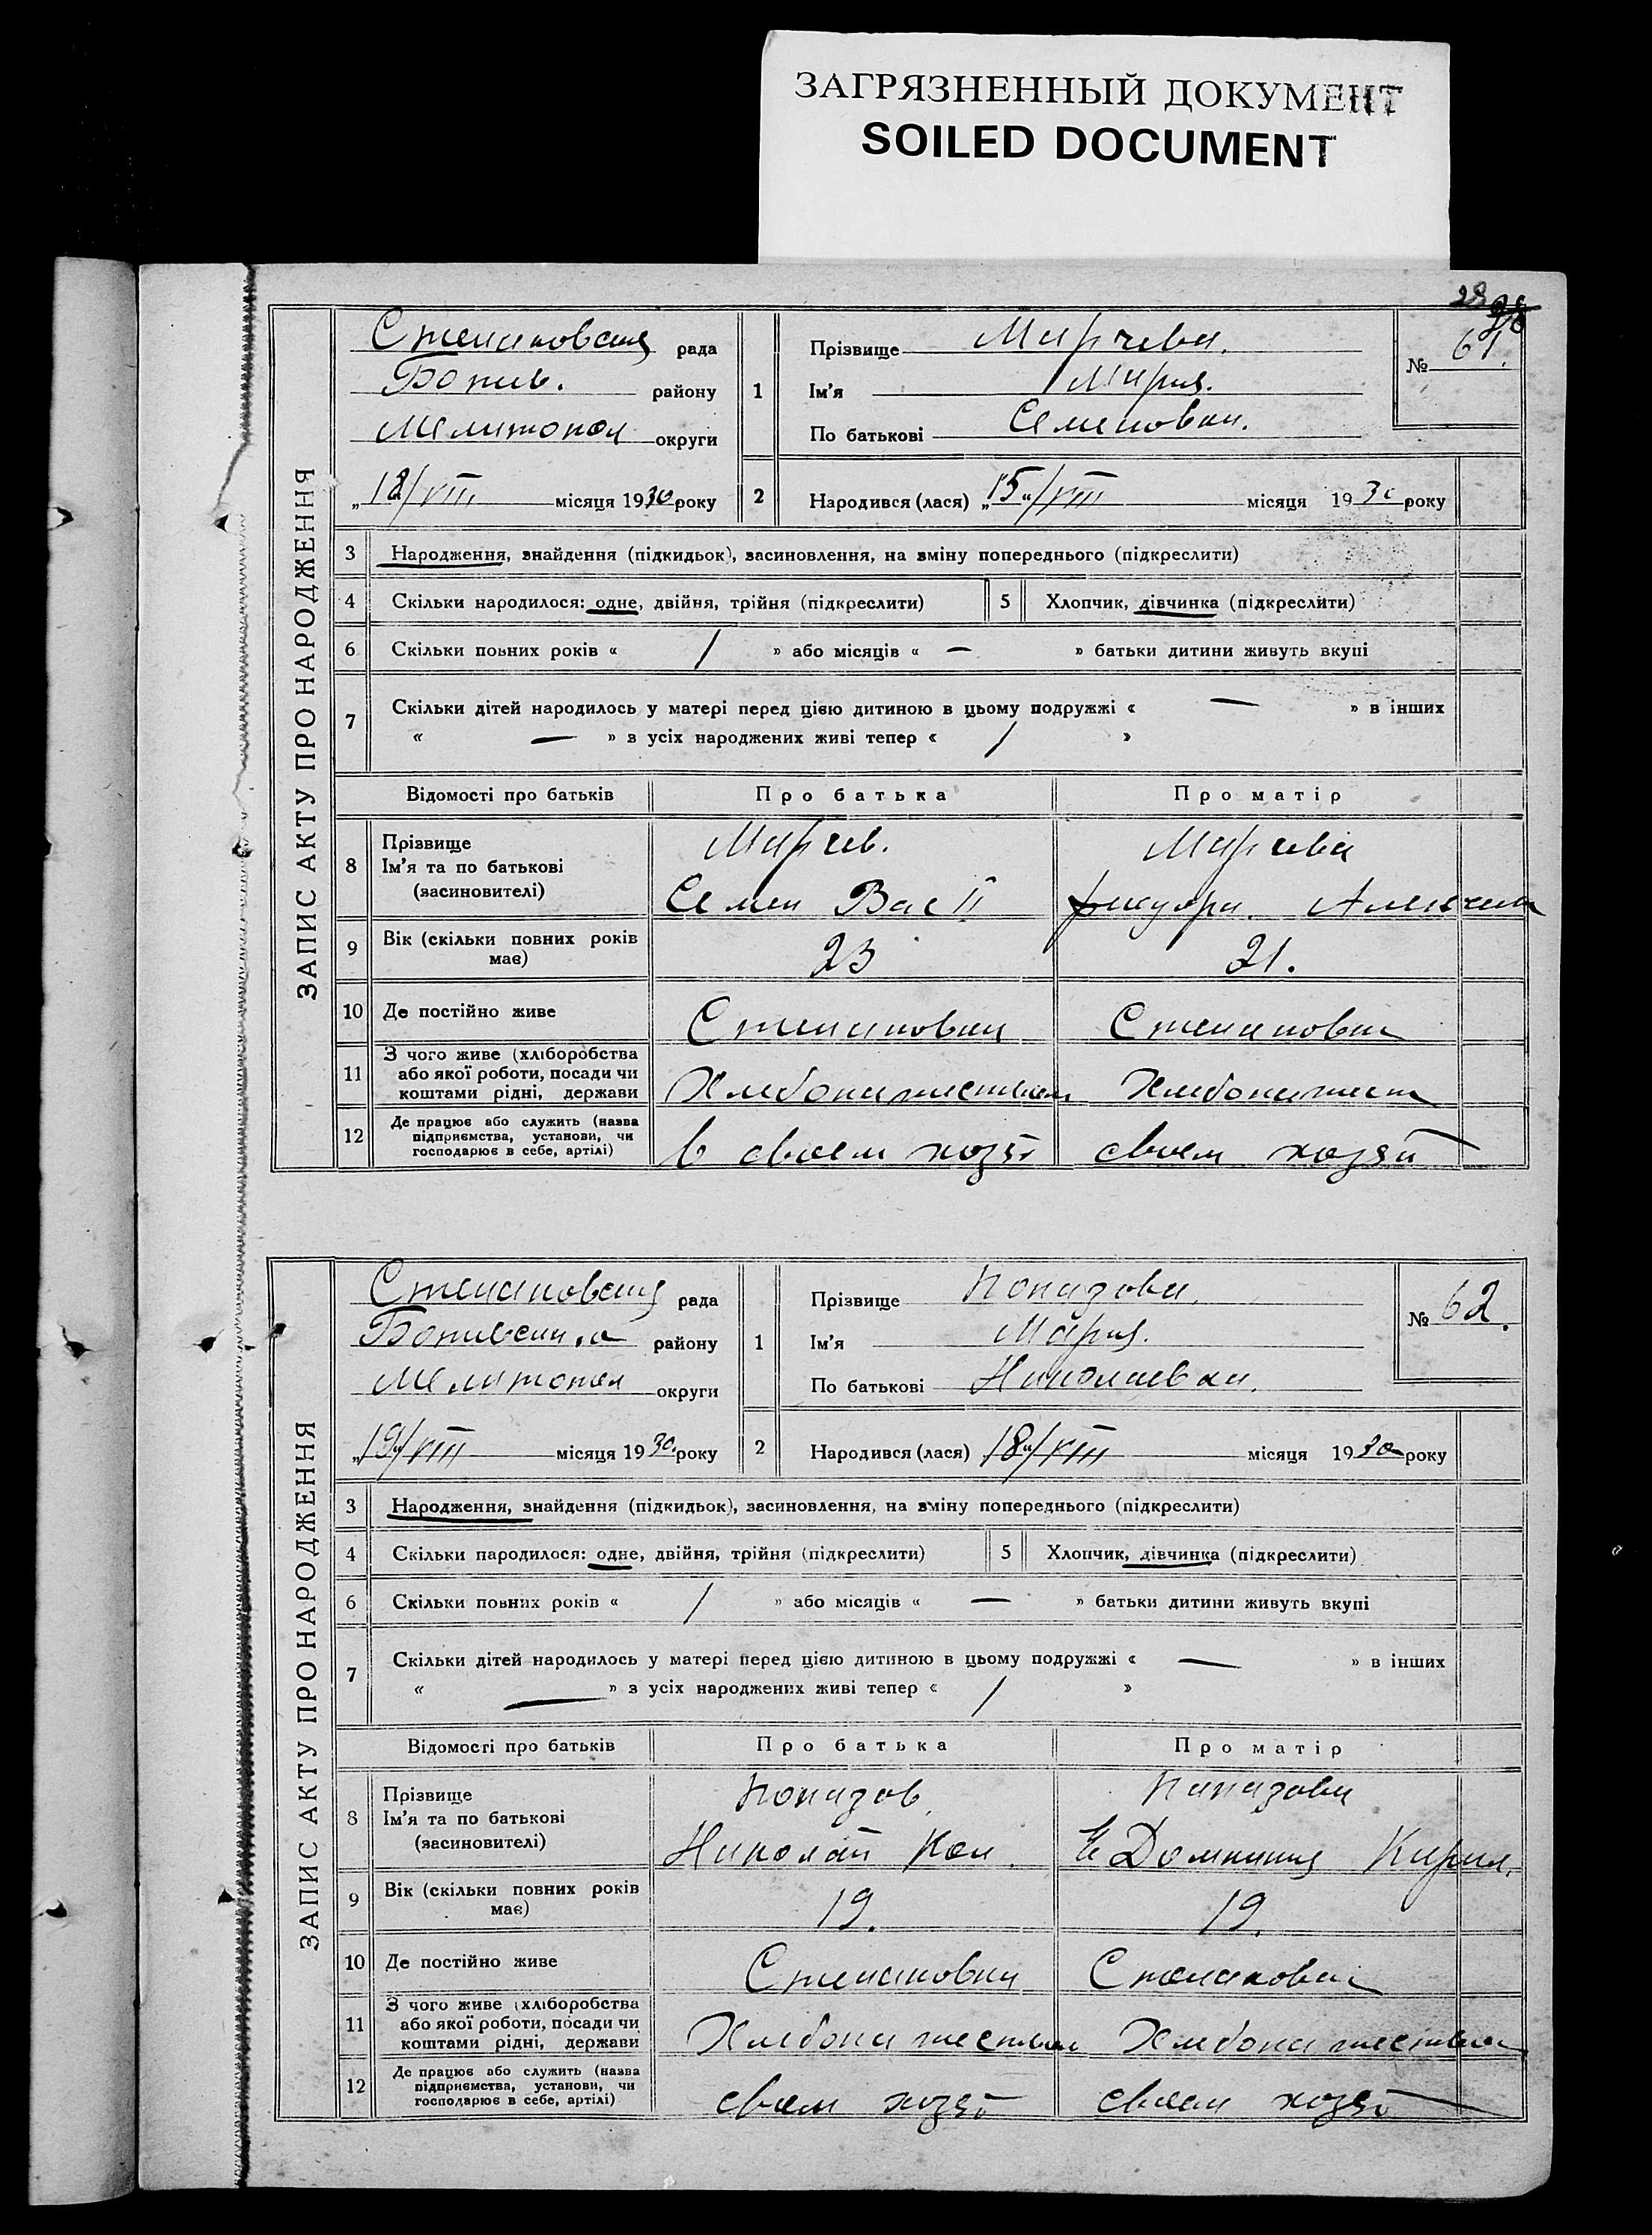 ЗАГРЯЗНЕННЫЙ ДОКУМЕНТ
SOILED DOCUMENT
28
ЗАПИС АКТУ ПРО НАРОДЖЕННЯ
Степановская рада
Ботив. району
Мелитопол округи
„18/VIII місяця 1930 року
1
Прізвище Мирчева.
Ім'я Мария.
По батькові Семеновна.
№ 61.
2 Народився (лася) „15"/VIII місяця 1930 року
3 Народження, знайдення (підкидьок), засиновлення, на зміну попереднього (підкреслити)
4 Скільки народилося: одне, двійня, трійня (підкреслити) 5 Хлопчик, дівчинка (підкреслити)
6 Скільки повних років « 1 » або місяців « — » батьки дитини живуть вкупі
7 Скільки дітей народилось у матері перед цією дитиною в цьому подружжі « — » в інших
« — » з усіх народжених живі тепер « 1 »
Відомості про батьків Про батька Про матір
8 Прізвище
Ім'я та по батькові
(засиновителі)
Мирчев. Мирчева
Семен Вас
9 Вік (скільки повних років має) 23 21.
10 Де постійно живе Степановка Степановка
11 З чого живе (хліборобства або якої роботи, посади чи коштами рідні, держави Хлебопашеством Хлебопашест
12 Де працює або служить (назва підприємства, установи, чи господарює в себе, артілі) В своем хозяй своем хозяй
ЗАПИС АКТУ ПРО НАРОДЖЕННЯ
Степановская рада
району
Мелитопол округи
„19"/VIII місяця 1930 року
1
Прізвище Попазова.
Ім'я Мария.
По батькові Николаевна.
№ 62.
2 Народився (лася) 18"/VIII місяця 1930 року
3 Народження, знайдення (підкидьок), засиновлення, на зміну попереднього (підкреслити)
4 Скільки народилося: одне, двійня, трійня (підкреслити) 5 Хлопчик, дівчинка (підкреслити)
6 Скільки повних років « 1 » або місяців « — » батьки дитини живуть вкупі
7 Скільки дітей народилось у матері перед цією дитиною в цьому подружжі « — » в інших
« — » з усіх народжених живі тепер « 1 »
Відомості про батьків Про батька Про матір
8 Прізвище
Ім'я та по батькові
(засиновителі)
Попазов Папазова
Николай Домникия Кирил.
9 Вік (скільки повних років має) 19. 19.
10 Де постійно живе Степановка Степановка
11 З чого живе (хліборобства або якої роботи, посади чи коштами рідні, держави Хлебопашеством Хлебопашеством
12 Де працює або служить (назва підприємства, установи, чи господарює в себе, артілі) своем хозяй своем хозяй